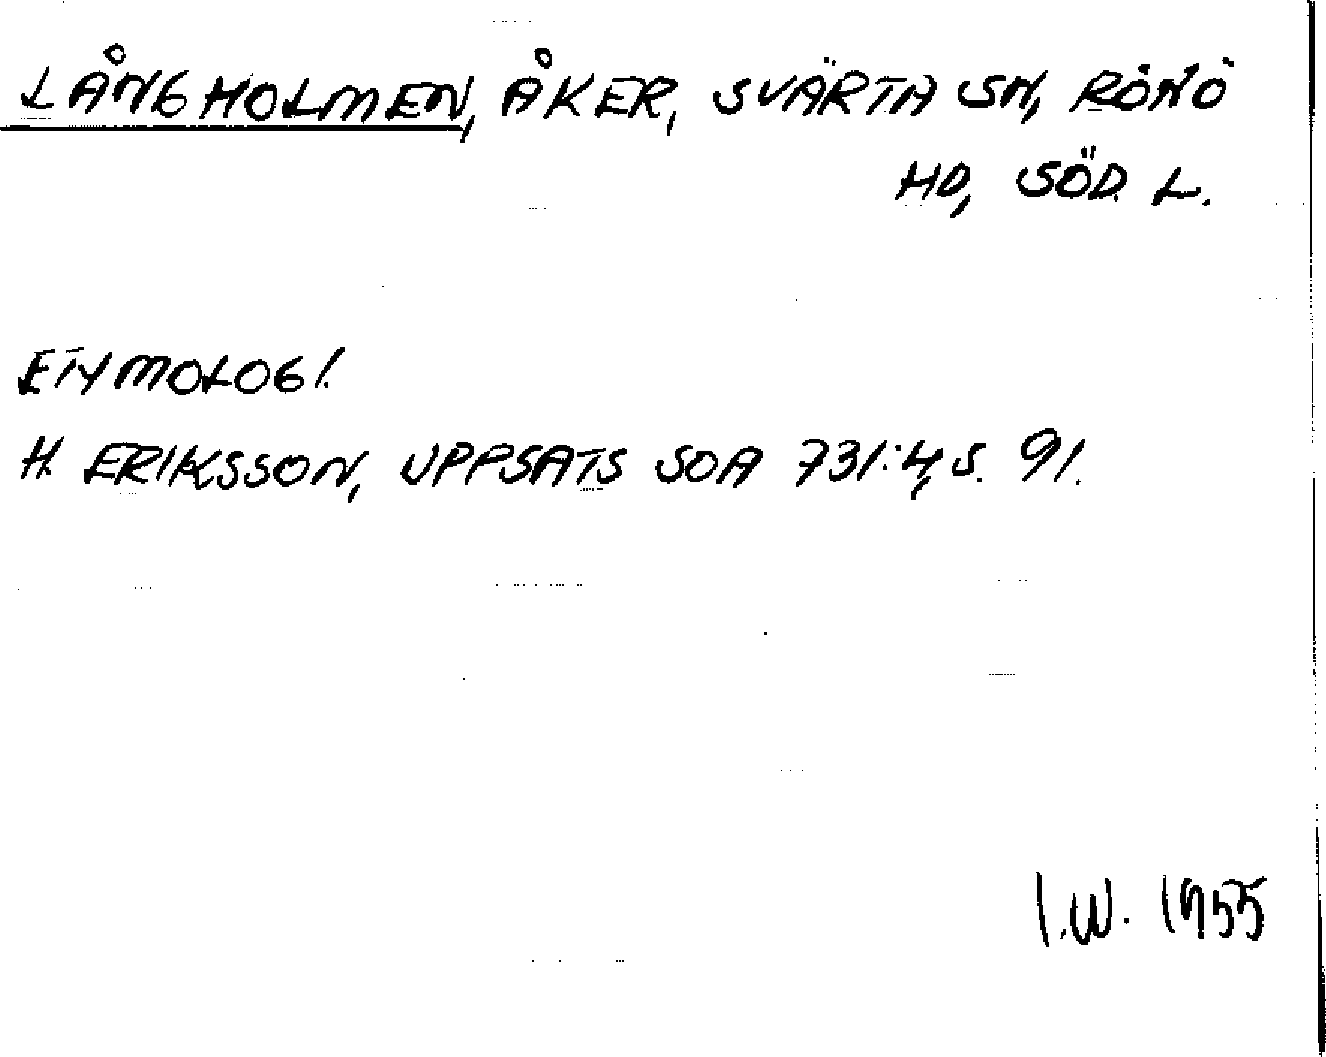 LÅNGHOLMEN, ÅKER, SVÄRTA SN, RÖNÖ
HD, SÖD. L.
ETYMOLOGI.
H. ERIKSSON, UPPSATS SOA 731:4, S. 91.
I.W. 1955